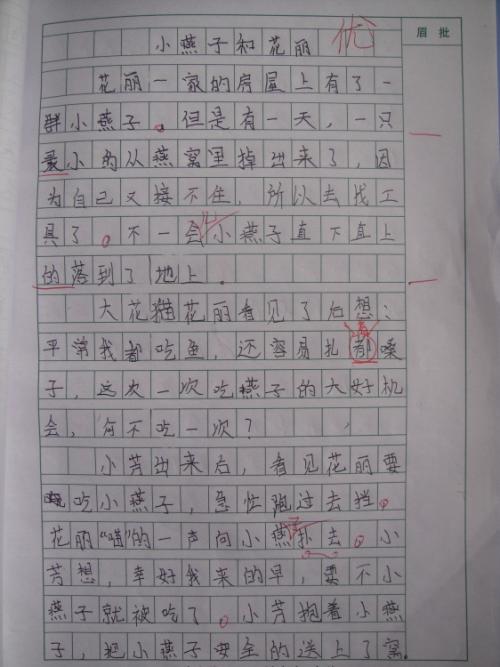 小燕子和花丽
优
眉 批
花丽一家的房屋上有了一
群小燕子。但是有一天,一只
最小的从燕窝里掉出来了,因
为自己又接不住,所以去找工
具了。不一会小燕子直下直上
的落到了地上.
大花猫花丽看见了后想:
平常我都吃鱼,还容易扎都嗓
子,这次一次吃燕子的大好机
会,何不吃一次?
小芳出来后,看见花丽要
吃小燕子,急忙跑过去拦。
花丽“喵”的一声向小燕子扑去。小
芳想,幸好我来的早,要不小
燕子就被吃了。小芳抱着小燕
子,把小燕子安全的送上了窝.